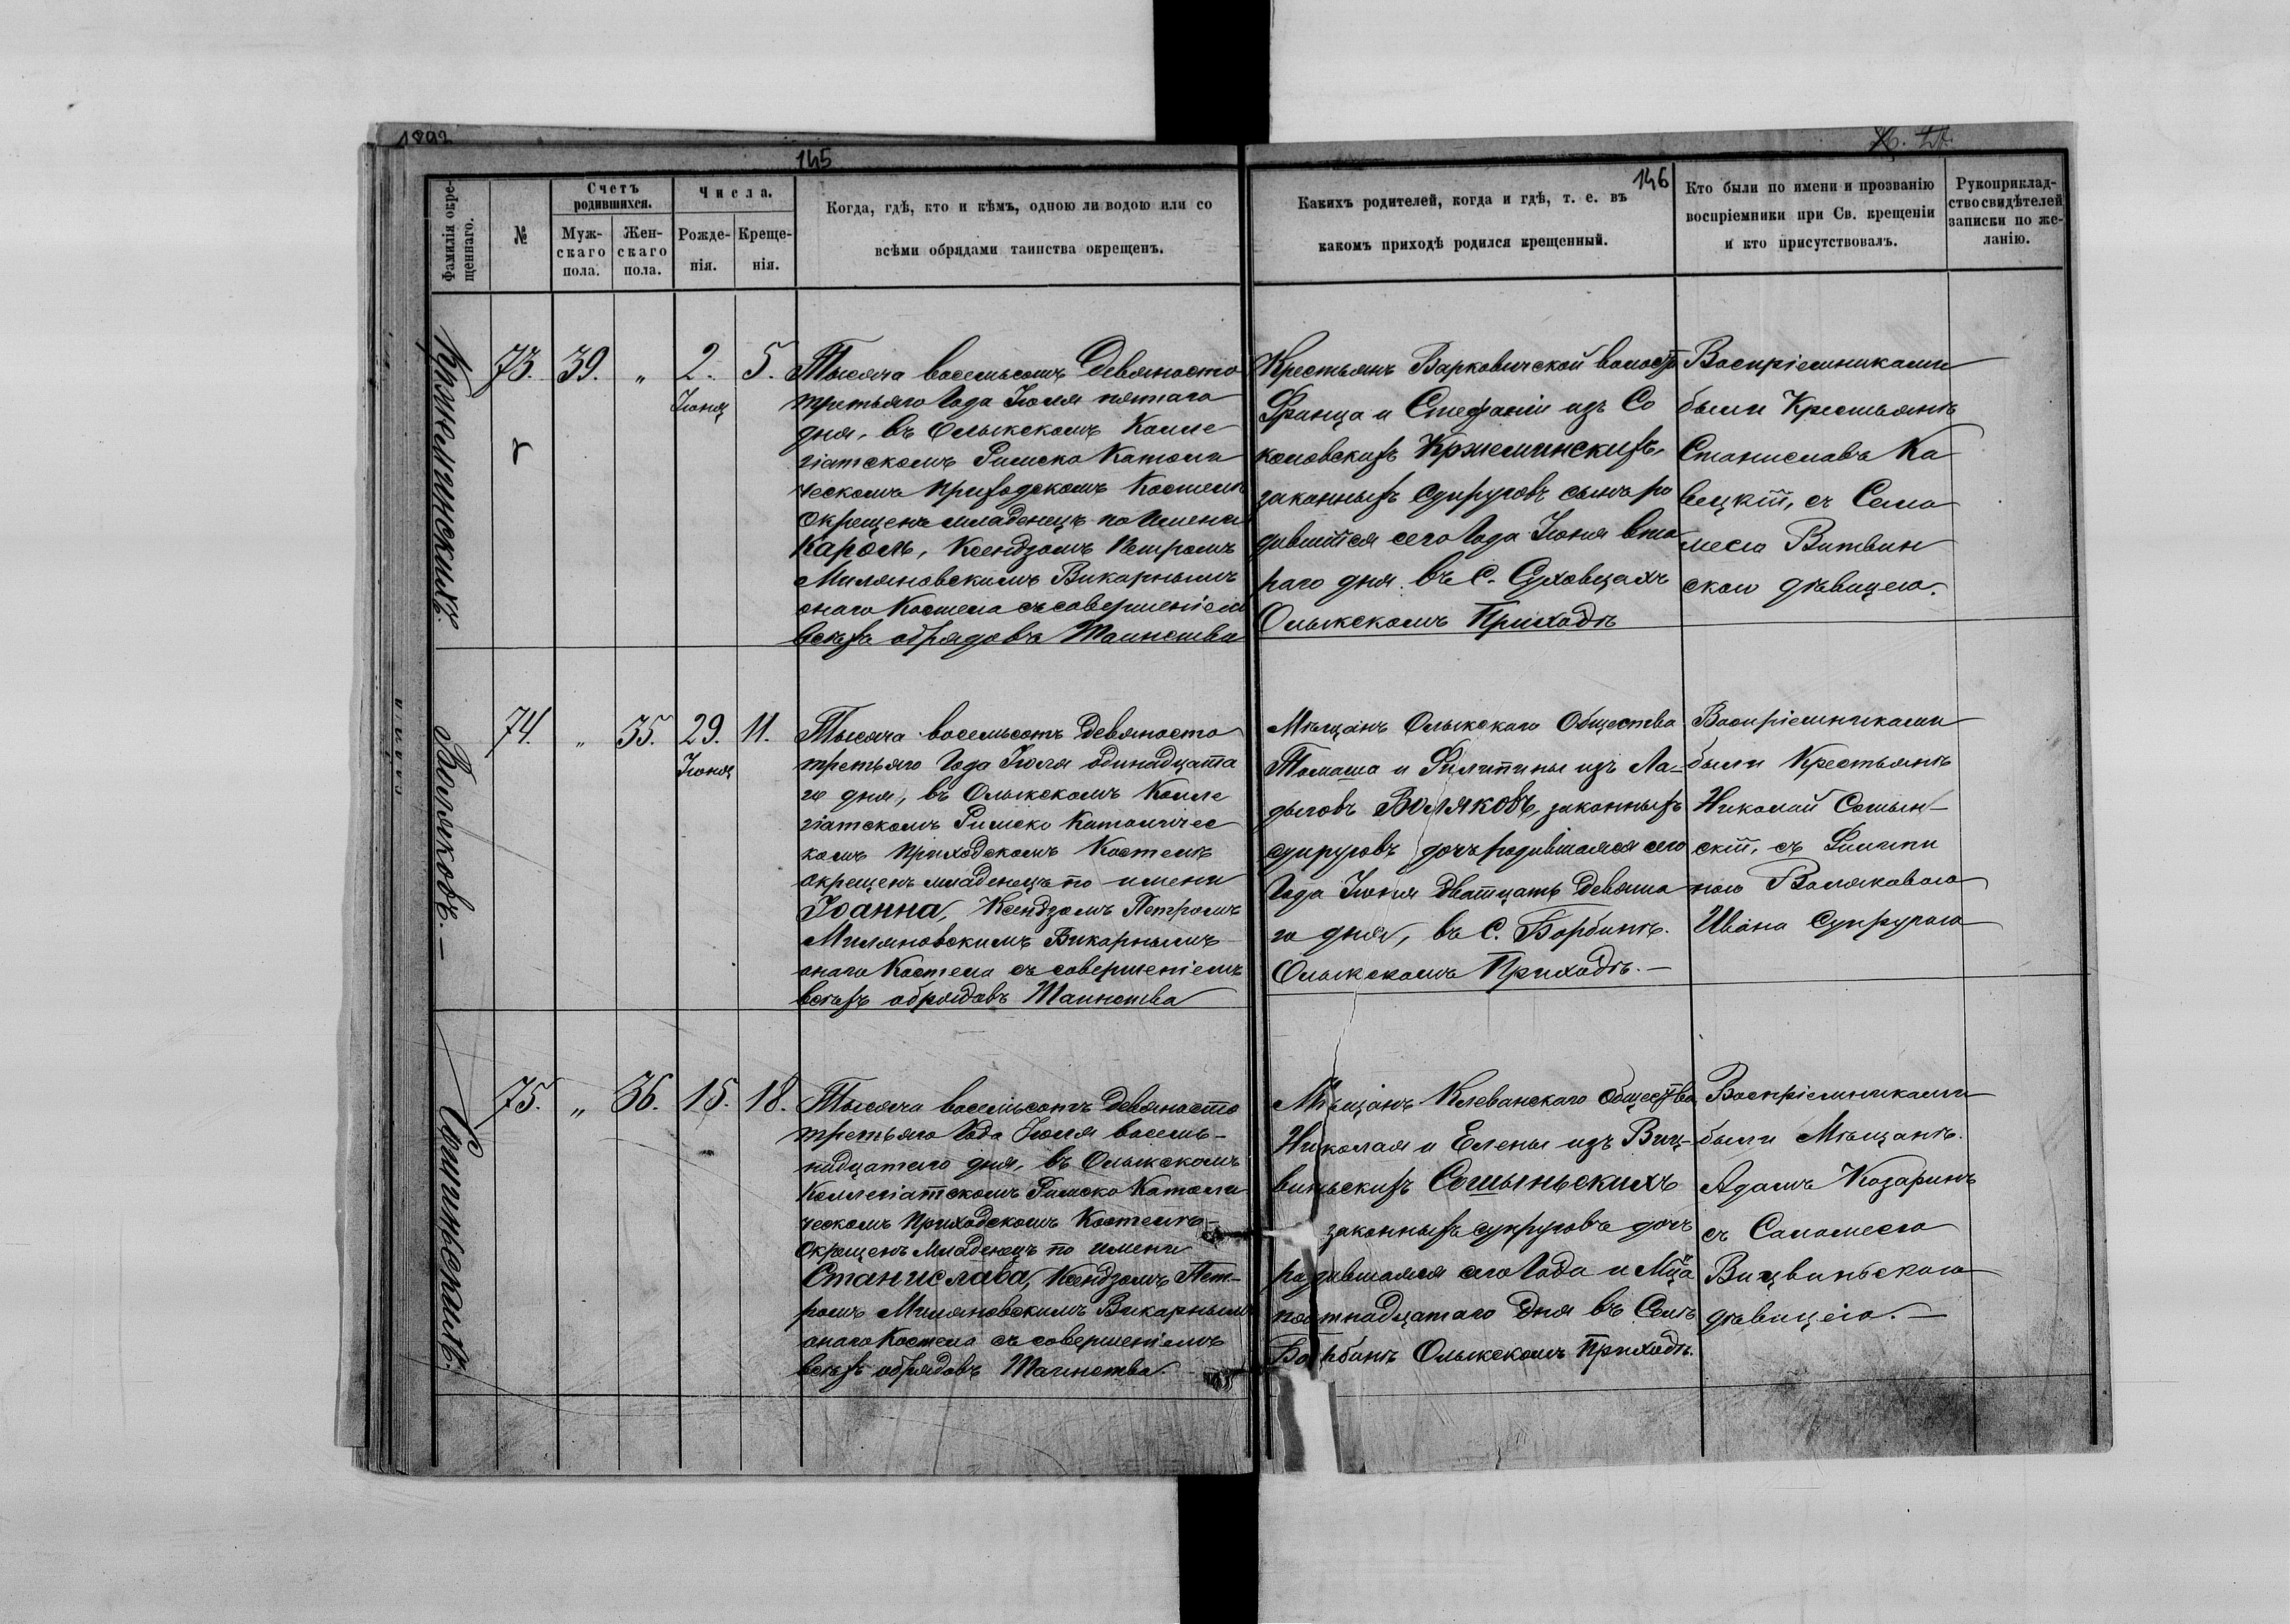 1892
145
Фамилія окре-
щеннаго.
№
Счетъ
родившихся.
Муж-
скаго
пола.
Жен-
скаго
пола.
Числа.
Рожде-
нія.
Креще-
нія.
Когда, гдѣ, кто и кѣмъ, одною ли водою или со
всѣми обрядами таинства окрещенъ.
146
Какихъ родителей, когда и гдѣ, т. е. въ
какомъ приходѣ родился крещенный.
Кто были по имени и прозванію
воспріемники при Св. крещеніи
и кто присутствовалъ.
Рукоприклад-
ство свидѣтелей
записки по же-
ланію.
Кржеминскихъ.
73.
39.
"
2.
Іюня
5.
Тысяча восемьсотъ девяносто
третьяго Года Іюля пятаго
дня, въ Олыкскомъ Колле
гіатскомъ Римско Католи
ческомъ Приходскомъ Костелѣ
окрещенъ младенецъ по Имени
Кароль, Ксендзомъ Петромъ
Миляновскимъ Викарнымъ
онаго Костела съ совершеніем
всѣхъ обрядовъ Таинства
Крестьянъ Варковичской волости
Франца и Стефаніи изъ Со
коловскихъ Кржеминскихъ,
законныхъ супруговъ сынъ ро
дившійся сего Года Іюня вто
раго дня въ С. Суховцахъ
Олыкскомъ Приходѣ
Воспріемниками
были Крестьянѣ
Станиславъ Ка
вецкій, съ Сало
меею Витвин
скою дѣвицею.
Воляковъ. —
74.
"
35.
29.
Іюня
11.
Тысяча восемьсотъ девяносто
третьяго Года Іюля одинадцата
го дня, въ Олыкскомъ Колле
гіатскомъ Римско Католичес
комъ Приходскомъ Костелѣ
окрещенъ младенецъ по имени
Іоанна, Ксендзомъ Петромъ
Миляновскимъ Викарнымъ
онаго Костела съ совершеніемъ
всѣхъ обрядовъ Таинства
Мѣщанъ Олыкскаго Общества
Томаша и Филипины изъ Ла-
дыговъ Воляковъ, законныхъ
супруговъ дочь родившаяся сего
Года Іюня двадцать девята
го дня, въ С. Борбинѣ.
Олыкскомъ Приходѣ. —
Воспріемниками
были Крестьянѣ
Николай Сошын-
скій, съ Филипи
ною Воляковою
Ивана Супругою
Сошыньскихъ.
75.
"
36.
15.
18.
Тысяча восемьсотъ девяносто
третьяго Года Іюля восемь-
надцатаго дня, въ Олыкскомъ
Коллегіатскомъ Римско Католи
ческомъ Приходскомъ Костелѣ
окрещенъ Младенецъ по имени
Станислава, Ксендзомъ Пет-
ромъ Миляновскимъ Викарнымъ
онаго Костела съ совершеніемъ
всѣхъ обрядовъ Таинства.
Мѣщанъ Клеванскаго Общества
Николая и Елены изъ Виц-
виньскихъ Сошыньскихъ
законныхъ супруговъ дочь
родившаяся сего Года и Мца
пятнадцатаго дня въ Селѣ
Борбинѣ Олыкскомъ Приходѣ.
Воспріемниками
были Мѣщанѣ.
Адамъ Козаринъ
съ Саломеею
Вицвиньскою
дѣвицею. —